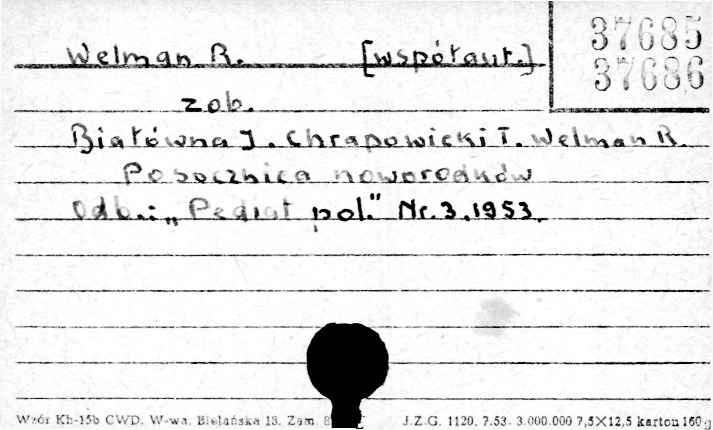 Welman R. [współaut.]
37685
37686
zob.
Białówna J. Chrapowicki T. Welman R.
Posocznica noworodków
Odb.: „Pediat pol." Nr. 3. 1953.
Wzór Kb-15b CWD, W-wa, Bielańska 18. Zam.
J.Z.G. 1120. 7.53. 3.000.000 7,5×12,5 karton 160 g